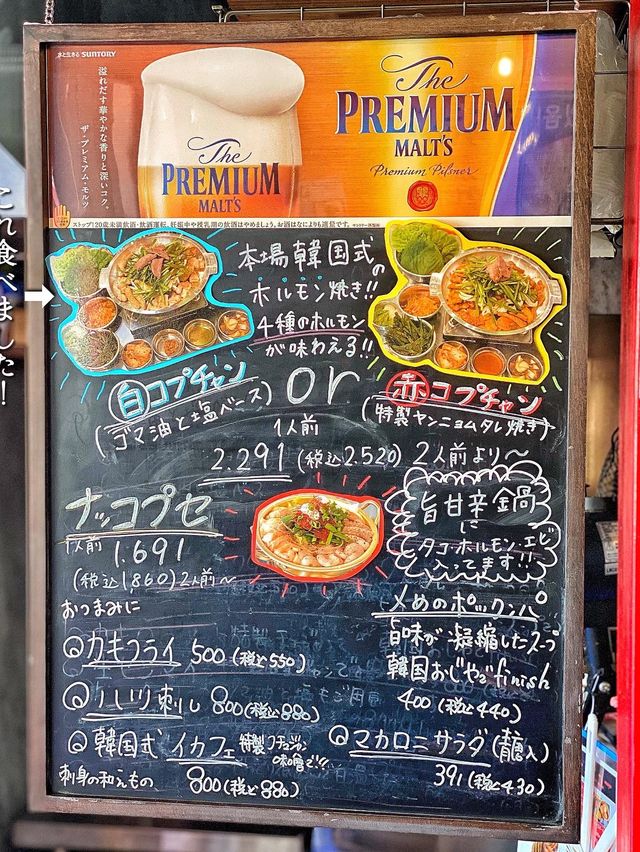 水と生きる SUNTORY
溢れだす華やかな香りと深いコク。
ザ・プレミアム・モルツ
The
PREMIUM
MALT'S
The
PREMIUM
MALT'S
Premium Pilsner
ストップ!20歳未満飲酒・飲酒運転。妊娠中や授乳期の飲酒はやめましょう。お酒はなによりも適量です。
これ食べました!
本場韓国式の
ホルモン焼き!!
4種のホルモン
が味わえる!!
白コプチャン
(ゴマ油と塩ベース)
or
赤コプチャン
(特製ヤンニョムタレ焼き)
1人前
2.291 (税込2.520) 2人前より〜
ナッコプセ
1人前
1.691
(税込1,860) 2人前〜
旨甘辛鍋
に
タコ・ホルモン・エビ
入ってます!!
おつまみに
カキフライ 500 (税込550)
800 (税込880)
韓国式 イカフェ 特製コチュジャン
味噌で!!
刺身の和えもの 800 (税込880)
〆めのポックンパ
旨味が凝縮したスープ
韓国おじやでfinish
400 (税込440)
マカロニサラダ
391 (税込430)